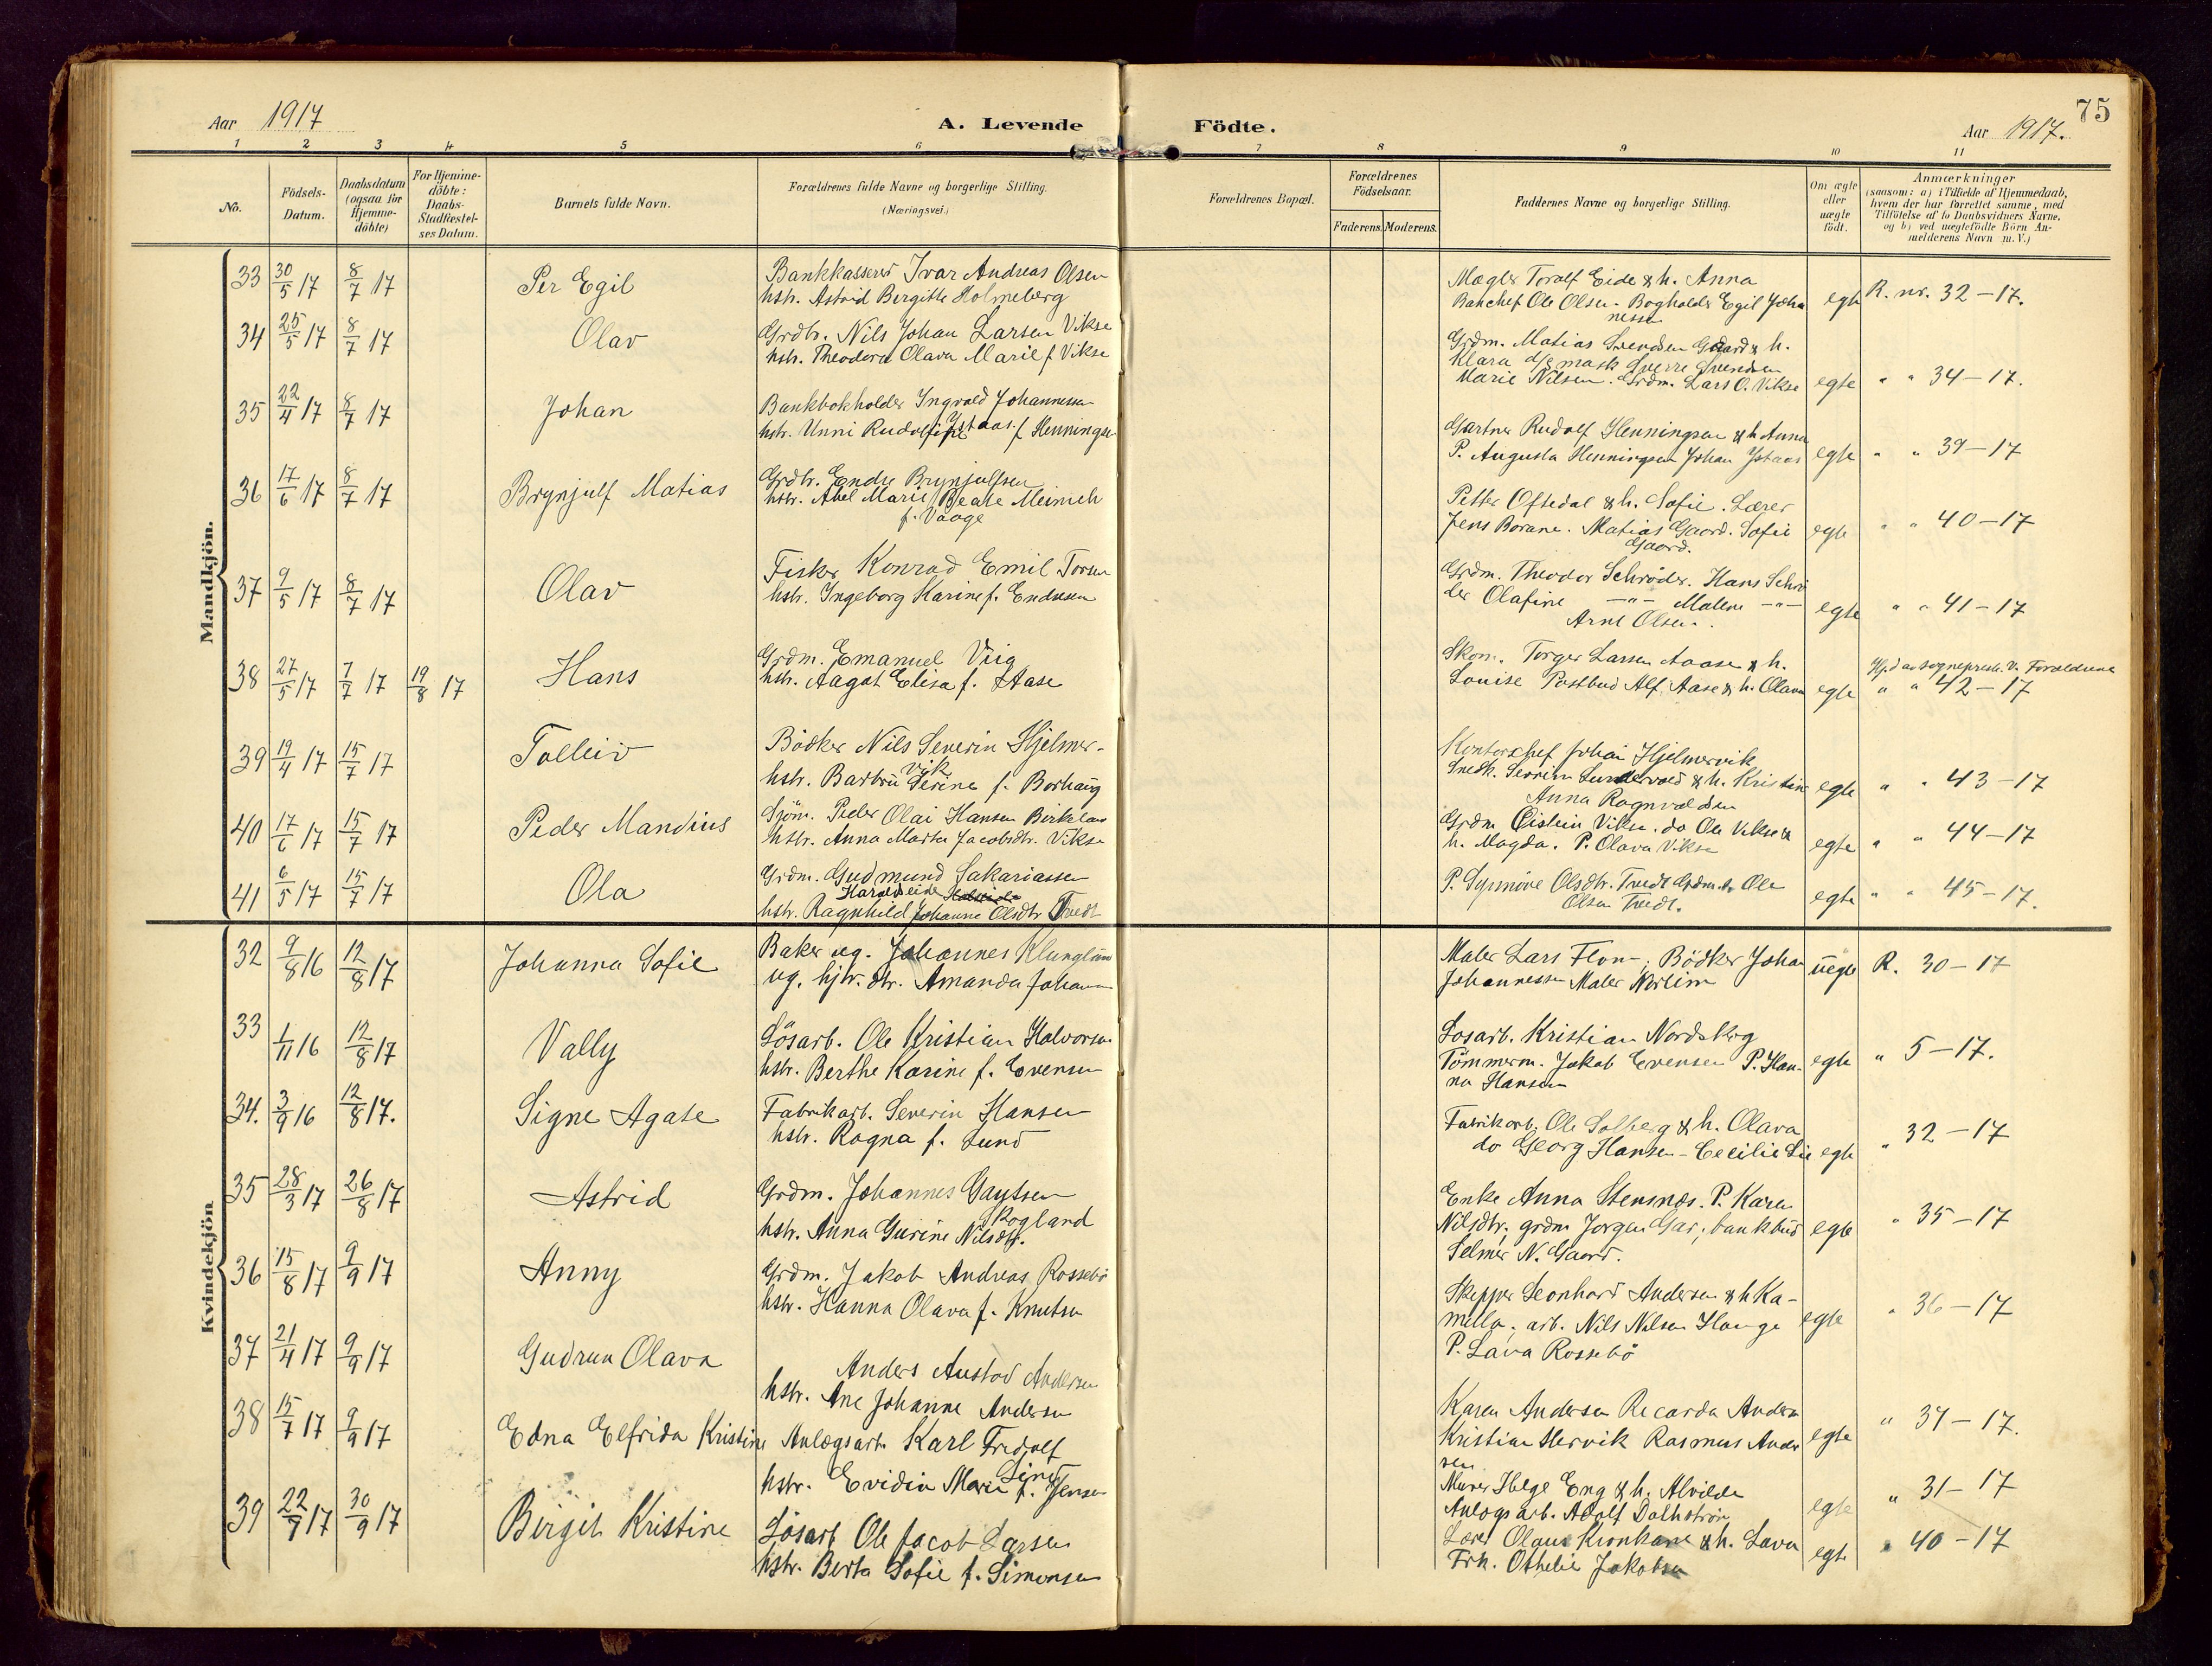 75
Aar 1917
A. Levende Födte.
Aar 1917.
1 2 3 4 5 6 7 8 9 10 11
No.
Födsels-Datum.
Daabsdatum (ogsaa for Hjemme-döbte)
For Hjemme-döbte: Daabs-Stadfæstelses Datum.
Barnets fulde Navn.
Forældrenes fulde Navne og borgerlige Stilling. (Næringsvei.)
Forældrenes Bopæl.
Forældrenes Födselsaar.
Faderens. Moderens.
Faddernes Navne og borgerlige Stilling.
Om ægte eller uægte födt.
Anmærkninger
(saasom: a) i Tilfælde af Hjemmedaab, hvem der har forrettet samme, med Tilföielse af to Daabsvidners Navne, og b) ved uægtefödte Börn Anmelderens Navn m. V.)
Mandkjön.
33 30/5 17 8/7 17 Per Egil
Bankkasserer Ivar Andreas Olsen
hstr. Astrid Bergitte Holmeberg
Mægler Toralf Eide & h. Anna
Bakchef Ole Olsen - Bogholder Egil Joha
nessen
egte R. nr. 32-17.
34 25/5 17 8/7 17 Olav
Grdbr. Nils Johan Larsen Vikse
hstr. Theodora Olava Marie f. Vikse
Grdm. Matias Svendsen Gaard & h.
Klara d/s mask Sverre Svendsen
Marie Nilsen. Grdm. Lars O. Vikse
egte " " 34-17.
35 22/4 17 8/7 17 Johan
Bankbokholder Ingvald Johannessen
Ystaas.
hstr. Unni Rudolfine f. Henningsen
Gartner Rudolf Henningsen & h Anna
P. Augusta Henningsen Johan Ystaas
egte " " 39-17
36 17/6 17 8/7 17 Brynjulf Matias
Grdbr. Endre Brynjulfsen
hstr. Abel Marie Beate Meinich
f. Vaage
Petter Oftedal & h. Sofie. Lærer
Jens Borane. Matias Gaard. Sofie
Gaard.
egte " " 40-17
37 9/5 17 8/7 17 Olav
Fisker Konrad Emil Torsen
hstr. Ingeborg Karine f. Endresen
Grdm. Theodor Schröder. Hans Schrö
der Olafine -"- Malene -"-
Arne Olsen.
egte " " 41-17
38 27/5 17 7/7 17 19/8 17 Hans
Grdm. Emanuel Viig
hstr. Aagot Elisa f. Aase
Skom. Torger Larsen Aase & h.
Louise Postbud Alf. Aase & h. Olava
egte
Hj.d av sogneprest. V. Forældrene
" " 42-17
39 19/4 17 15/7 17 Tolleiv
Bödker Nils Severin Hjelmer-
vik
hstr. Barbru Serine f. Borhaug
Kontorchef Johan Hjelmervik
Snedk. Severin Sundervold & h. Kristine
Anna Ragnvaldsen
egte " " 43-17
40 17/6 17 15/7 17 Peder Mandius
Sjöm. Peder Olai Hansen Birkeland
hstr. Anna Marta Jacobsdtr. Vikse
Grdm Eistein Vikse. do Ole Vikse &
h. Magda. P. Olava Vikse
egte " " 44-17
41 6/5 17 15/7 17 Ola
Grdm. Gudmund Sakariassen
Haraldseide
hstr. Ragnhild Johanne Olsdtr Tvedt
P. Synnöve Olsdtr. Tvedt Grdm. Ole
Olsen Tvedt.
egte " " 45-17.
Kvindekjön
32 9/8 16 12/8 17 Johanna Sofie
Baker ug. Johannes Klungland
ug. hjv. dtr. Amanda Johann
Maler Lars Flon-; Bödker Johan
Johannessen Maler Norheim
uegte R. 30-17
33 1/11 16 12/8 17 Vally
Lösarb. Ole Kristian Halvorsen
hstr. Berthe Karine f. Evensen
Losarb. Kristian Nordskog
Tömmerm. Jakob Evensen P. Han-
na Hansen
egte " 5-17.
34. 3/9 16 12/8 17. Signe Agate
Fabrikarb. Severin Hansen
hstr. Ragna f. Lund
Fabrikarb. Ole Solberg & h. Olava
do Georg Hansen - Cecilie Lie
egte " 32-17
35 28/3 17 26/8 17 Astrid
Grdm. Johannes Gautsen
Rogland
hstr. Anna Gurine Nilsdtr.
Enke Anna Stensnæs. P. Karen
Nilsdtr, grdm Jorgen Gar; bankbud
Selmer N. Gaard.
egte " 35-17
36 15/8 17 9/9 17 Anny
Grdm. Jakob Andreas Rossebö
hstr. Hanna Olava f. Knutsen
Skipper Leonhard Andersen & h Ka-
milla, arb. Nils Nilsen Hauge
P. Lava Rossebö
egte " 36-17
37 21/4 17 9/9 17 Gudrun Olava
Anders Austad Andersen
hstr. Ane Johanne Andersen
Karen Andersen Recarda Andersen
Kristian Hervik Rasmus Ander
sen
egte " 37-17.
38 15/7 17 9/9 17 Edna Elfrida Kristine
Anlægsarb Karl Fridolf
Lind
hstr. Evidia Marie f. Jensen
Murer Helge Eng & h. Alvilda
Anlægsarb. Adolf Dalhström
egte " 31-17
39 22/7 17 30/9 17 Birgit Kristine
Lösarb Ole Jacob Larsen
hstr. Berta Sofie f. Simonsen
Lærer Olaus Kronkane & h. Lava
Frk. Othelie Jakobsen
egte " 40-17